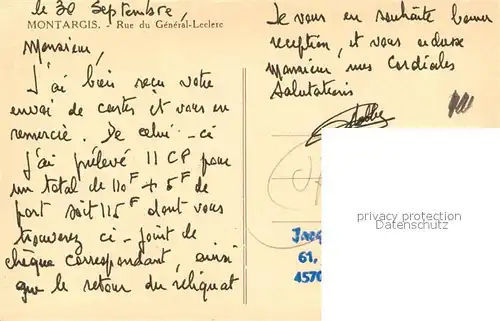 le 30 Septembre,
MONTARGIS. - Rue du Général-Leclerc
Monsieur,
J'ai bien reçu votre
envoi de cartes et vous en
remercie. De celui-ci
J'ai prélevé 11 CP pour
un total de 110F + 5F de
port soit 115F dont vous
trouverez ci-joint le
chèque correspondant, ainsi
que le retour du reliquat
Je vous en souhaite bonne
reception, et vous adresse
Monsieur mes Cordiales
Salutations
privacy protection
Datenschutz
Jacq
61,
4570